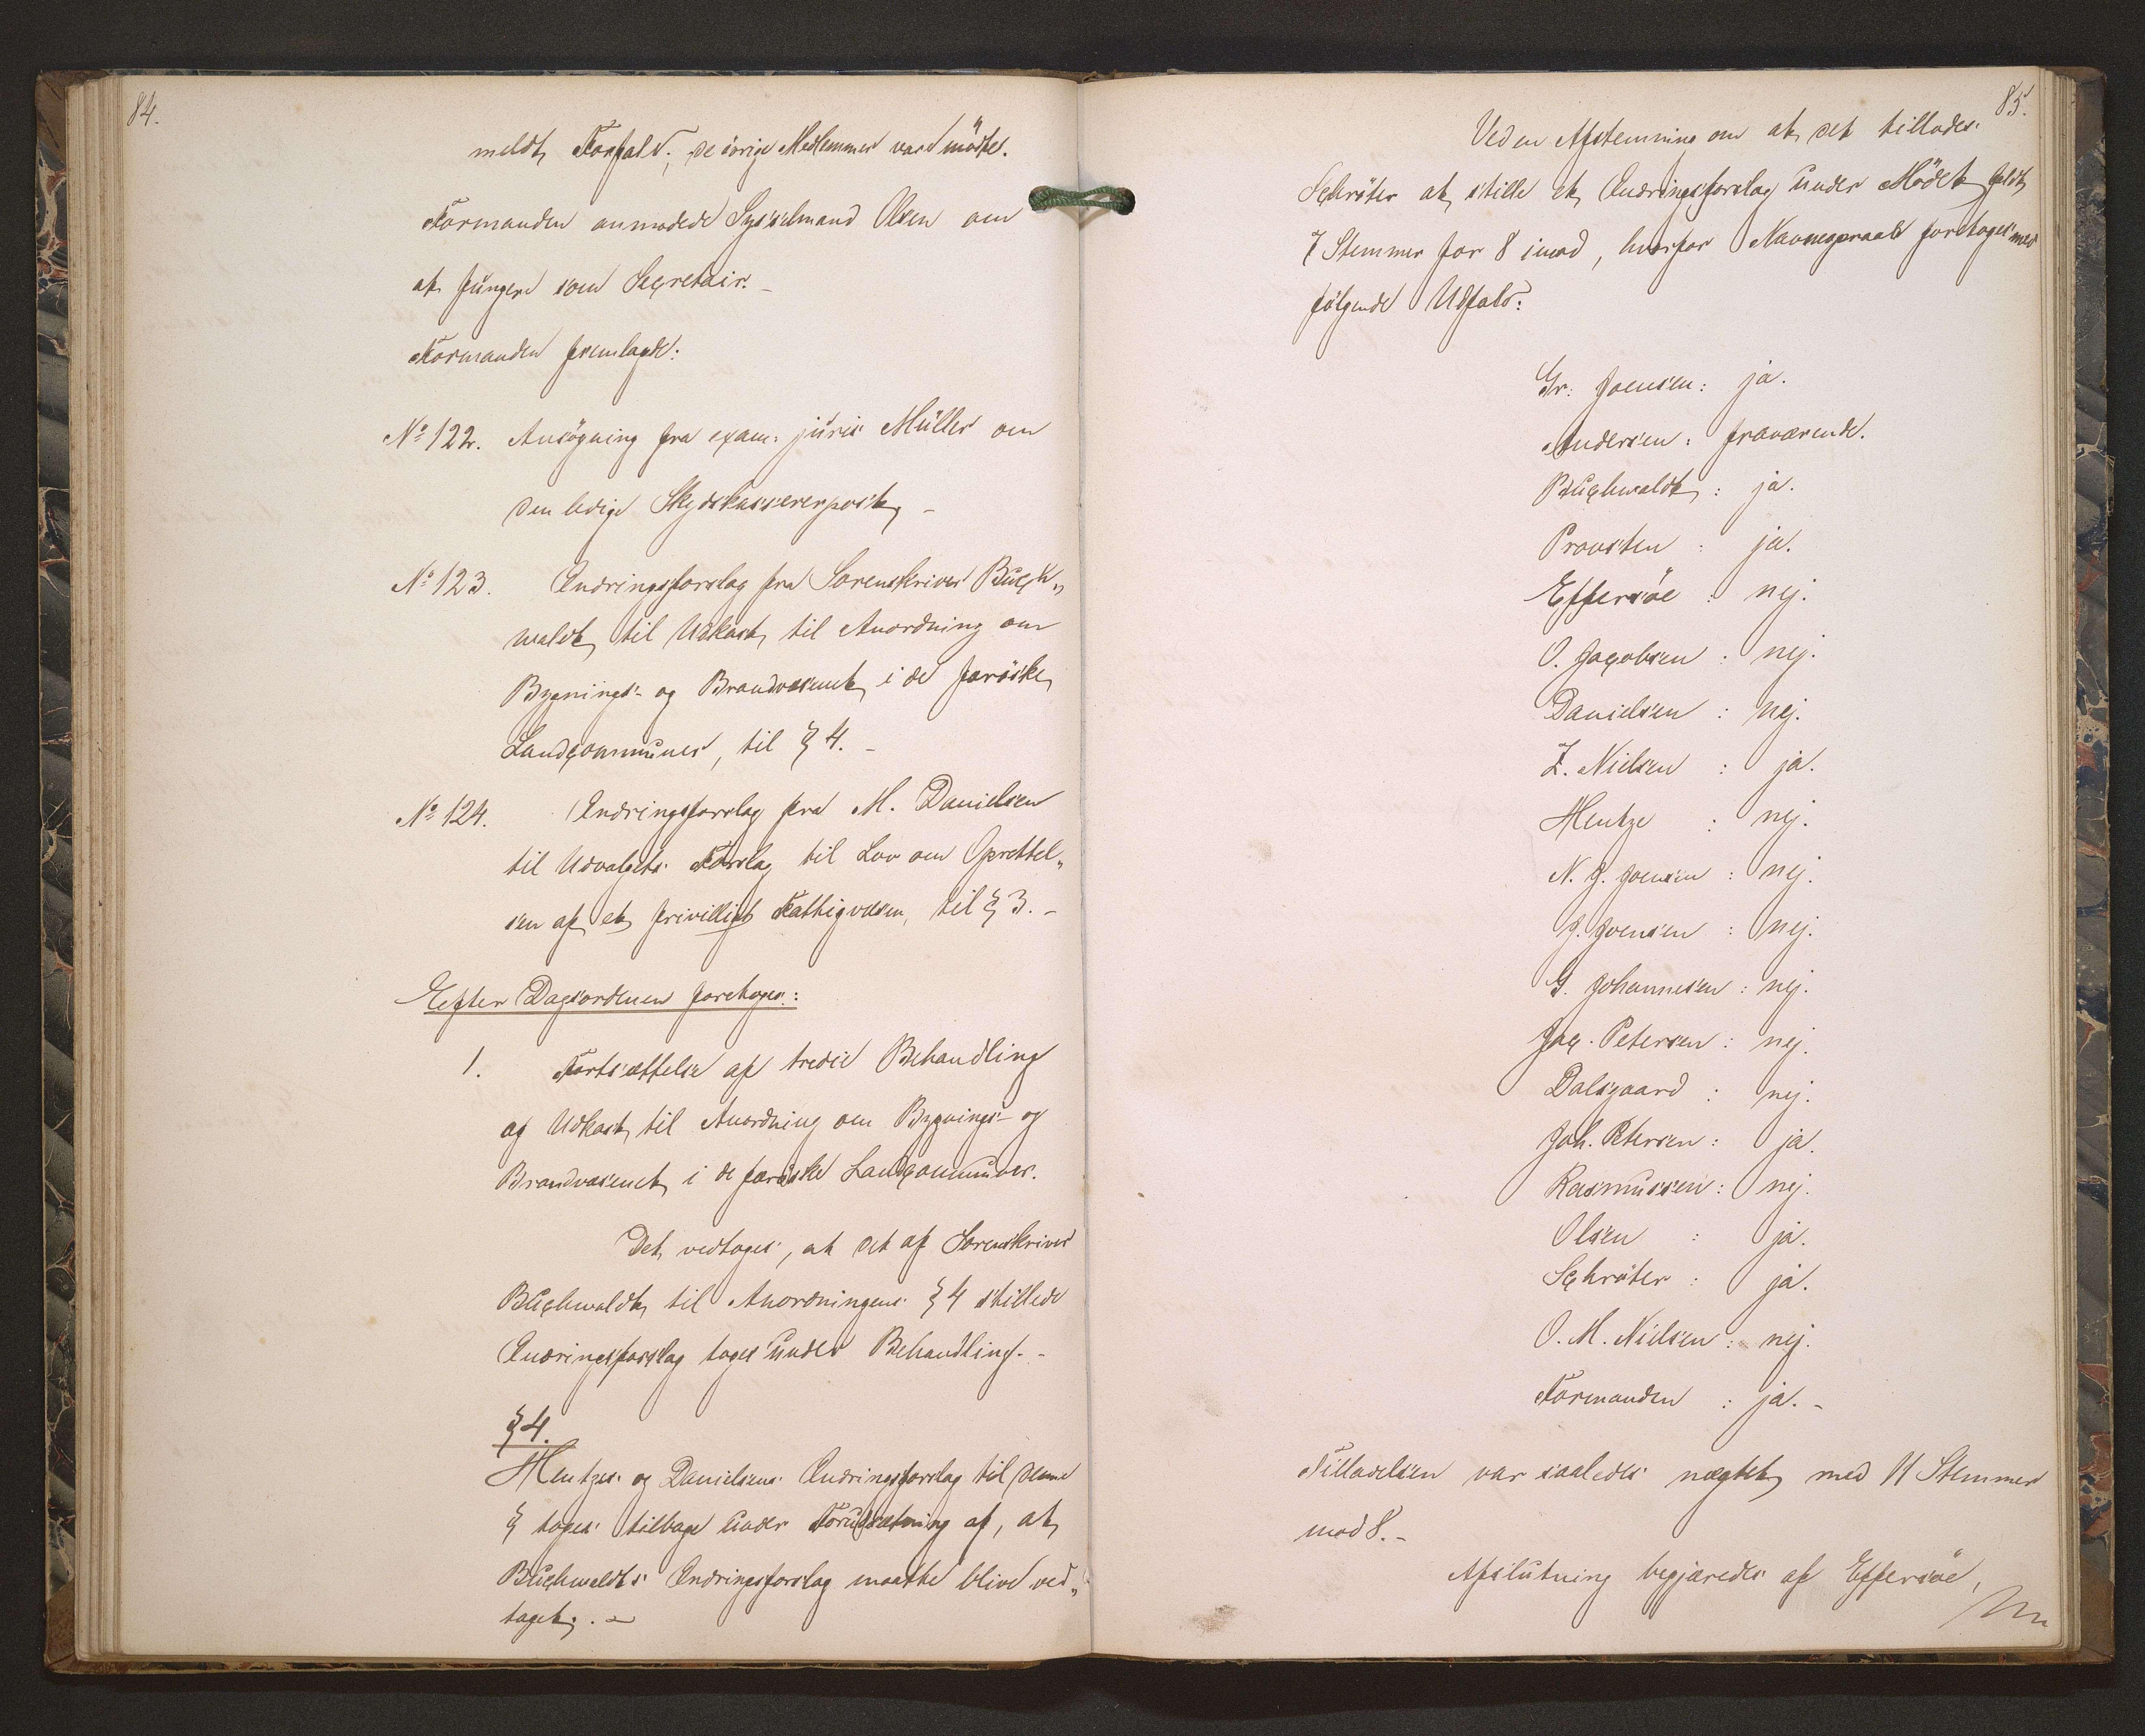 84.
meldt Forfald; de övrige Medlemmer vare mödte.
Formanden anmodede Sysselmand Olsen om
at fungere som Secretair. –
Formanden fremlagde:
No 122. Ansögning fra exam: juris Müller om
den ledige Skydskassererpost –
No 123. Ændringsforslag fra Sorenskriver Buch„
waldt til Udkast til Anordning om
Bygnings- og Brandvæsenet i de færöske
Landcommuner, til § 4. –
No 124. Ændringsforslag fra M. Danielsen
til Udvalgets Forslag til Lov om Oprettel„
sen af et frivilligt Fattigvæsen, til § 3. –
Efter Dagsordenen foretoges:
1. Fortsættelse af tredie Behandling
af Udkast til Anordning om Bygnings- og
Brandvæsenet i de færöske Landcommuner.
Det vedtoges, at det af Sorenskriver
Buchwaldt til Anordningens § 4 stillede
Ændringsforslag toges under Behandling. –
§ 4.
Hentzes og Danielsens Ændringsforslag til denne
§ toges tilbage under Forudsætning af, at
Buchwaldts Ændringsforslag maatte blive ved„
taget. –
85.
Ved en Afstemning om at det tillades
Schröter at stille et Ændringsforslag under Mödet faldt
7 Stemmer for 8 imod, hvorfor Navneopraab foretoges med
fölgende Udfald:
Gr. Joensen: ja.
Andersen: fraværende.
Buchwaldt: ja.
Provsten: ja.
Effersöe: nej.
O. Jacobsen: nej.
Danielsen: nej.
Z. Nielsen: ja.
Hentze: nej.
N. J. Joensen: nej.
J. Joensen: nej.
G. Johannesen: nej.
Jac. Petersen: nej.
Dalsgaard: nej.
Joh. Petersen: ja.
Rasmussen: nej.
Olsen: ja.
Schröter: ja.
O. M. Nielsen: nej.
Formanden: ja. –
Tilladelsen var saaledes nægtet med 11 Stemmer
mod 8. –
Afslutning begjæredes af Effersöe,